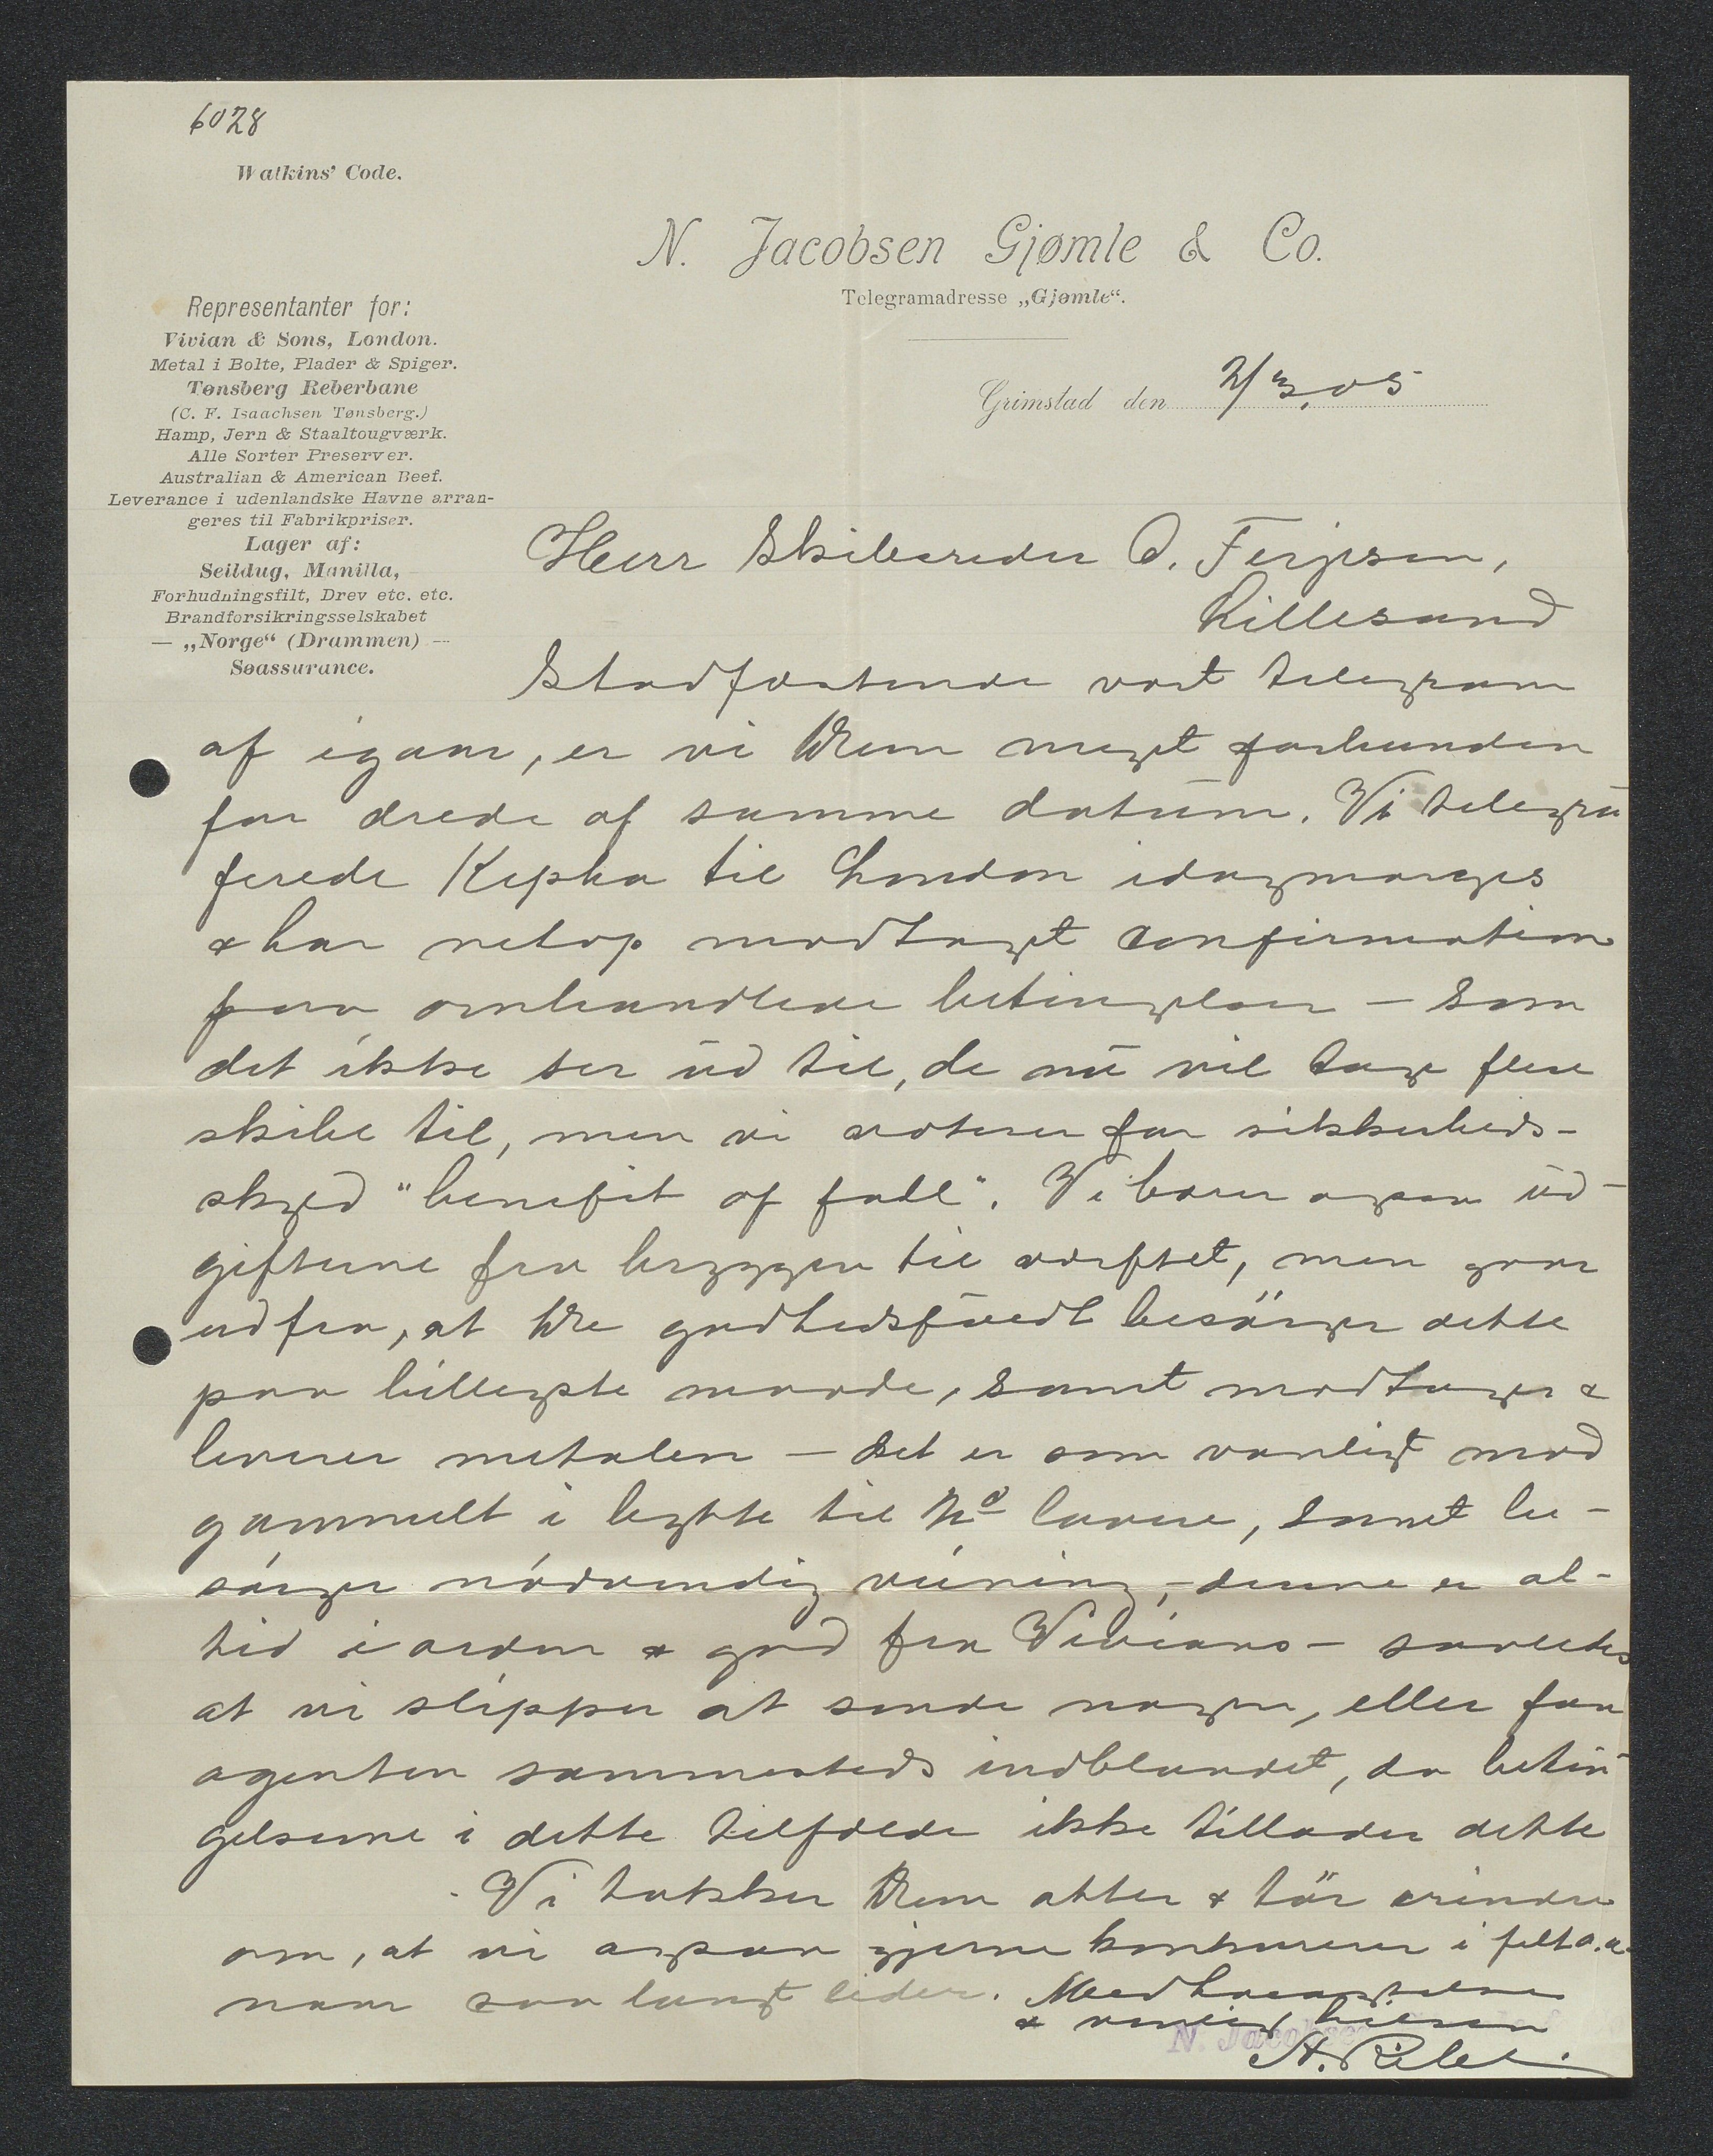 6028
Watkins' Code.
N. Jacobsen Gjømle & Co.
Telegramadresse „Gjømle“.
Representanter for:
Vivian & Sons, London.
Metal i Bolte, Plader & Spiger.
Tønsberg Reberbane
(C. F. Isaachsen Tønsberg.)
Hamp, Jern & Staaltougværk.
Alle Sorter Preserver.
Australian & American Beef.
Leverance i udenlandske Havne arran-
geres til Fabrikpriser.
Lager af:
Seildug, Manilla,
Forhudningsfilt, Drev etc. etc.
Brandforsikringsselskabet
— „Norge“ (Drammen) —
Søassurance.
Grimstad den 2/3.05
Herr Skibsreder O. Terjesen,
Lillesand
Stadfæstende vort telegram
af igaar, er vi Dem meget forbunden
for derede af samme datum. Vi telegra
ferede til London idagmorges
& har netop modtaget confirmation
paa omhandlede betingelser - Som
det ikke ser ud til, de nu vil tage flere
skibe til, men vi noterer for sikkerheds-
skyld "benefit of fall". Vi bærer ogsaa ud-
gifterne fra bryggen til værftet, men gaar
ud fra, at De godhedsfuldt besørger dette
paa billigste maade, samt modtager &
leverer metalen - det er som vanligt mod
gammelt i bytte til No lavere, samt be-
sørger nødvendig veining, - denne er al-
tid i orden & god fra Vivians - saaledes
at vi slipper at sende nogen, eller faa
agenten sammesteds indblandet, da betin-
gelserne i dette tilfælde ikke tillader dette
Vi takker Dem atter & tør erindre
om, at vi ogsaa gjerne konkurerer i filt o.a.
naar saa langt lider. Med høiagtelse
& venlig hilsen
N. Jacobsen